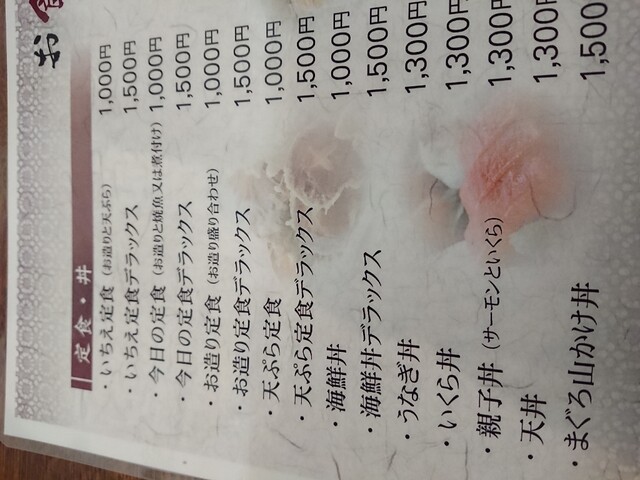 お食
定食・丼
・いちえ定食（お造りと天ぷら） 1,000円
・いちえ定食デラックス 1,500円
・今日の定食（お造りと焼魚又は煮付け） 1,000円
・今日の定食デラックス 1,500円
・お造り定食（お造り盛り合わせ） 1,000円
・お造り定食デラックス 1,500円
・天ぷら定食 1,000円
・天ぷら定食デラックス 1,500円
・海鮮丼 1,000円
・海鮮丼デラックス 1,500円
・うなぎ丼 1,300円
・いくら丼 1,300円
・親子丼（サーモンといくら） 1,300円
・天丼 1,300円
・まぐろ山かけ丼 1,500